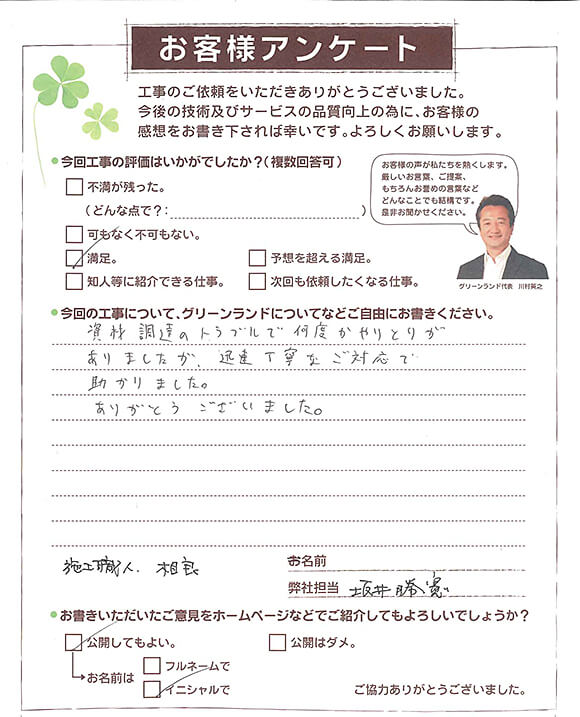 お客様アンケート
工事のご依頼をいただきありがとうございました。
今後の技術及びサービスの品質向上の為に、お客様の
感想をお書き下されば幸いです。よろしくお願いします。
今回工事の評価はいかがでしたか？（複数回答可）
不満が残った。
（どんな点で？：　）
可もなく不可もない。
満足。
予想を超える満足。
知人等に紹介できる仕事。
次回も依頼したくなる仕事。
お客様の声が私たちを熱くします。
厳しいお言葉、ご提案、
もちろんお誉めの言葉など
どんなことでも結構です。
是非お聞かせください。
グリーンランド代表　川村英之
今回の工事について、グリーンランドについてなどご自由にお書きください。
資材調達のトラブルで何度かやりとりが
ありましたが、迅速丁寧なご対応で
助かりました。
ありがとうございました。
施工職人．相良
お名前
弊社担当 坂井勝寛
お書きいただいたご意見をホームページなどでご紹介してもよろしいでしょうか？
公開してもよい。
公開はダメ。
お名前は
フルネームで
イニシャルで
ご協力ありがとうございました。